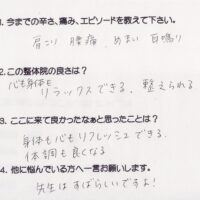 1. 今までの辛さ、痛み、エピソードを教えて下さい。
肩こり 腰痛 めまい 耳鳴り
2. この整体院の良さは?
心も身体も
リラックスできる。整えられる
3. ここに来て良かったなぁと思ったことは?
身体も心もリフレッシュできる。
体調も良くなる
4. 他に悩んでいる方へ一言お願いします。
先生はすばらしいですよ!